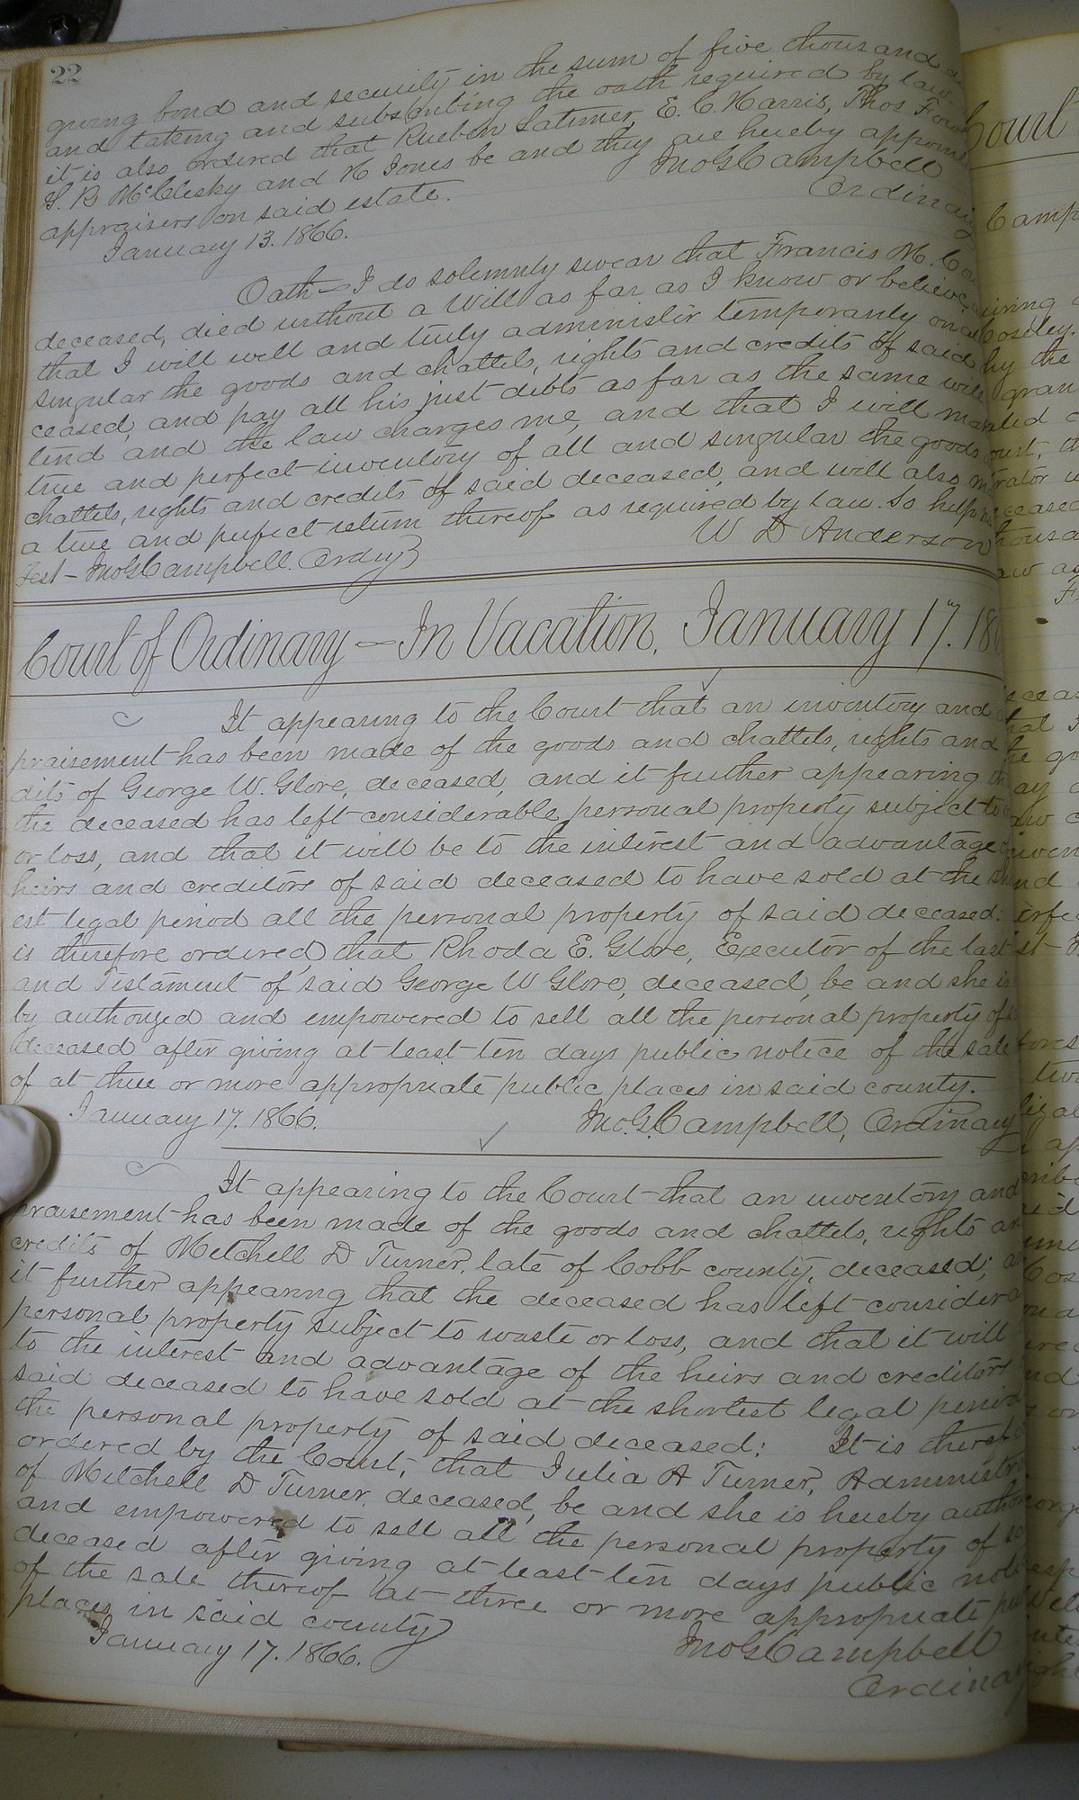 22
giving bond and security in the sum of five thousand
and taking and subscribing the oath required by law.
it is also ordered that Rueben Latimer, E. C. Harris, Thos
S. B. McClesky and N Jones be and they are hereby
appraisers on said estate. Jno G Campbell
January 13. 1866. Ordinary
Oath — I do solemnly swear that Francis M.
deceased, died without a Will as far as I know or believe
that I will well and truly administir temporarily on
singular the goods and chattels, rights and credits of said
ceased, and pay all his just debts as far as the same will
tend and the law charges me, and that I will
true and perfect inventory of all and singular the goods
chattels, rights and credits of said deceased, and will also
a true and perfect return thereof as required by law. So help
Test - Jno G Campbell. Ordy W D Anderson
Court of Ordinary — In Vacation, January 17. 18
It appearing to the Court that an inventory and
praisement has been made of the goods and chattels, rights and
dits of George W. Glore, deceased, and it further appearing
the deceased has left considerable personal property subject to
or loss, and that it will be to the interest and advantage
heirs and creditors of said deceased to have sold at the
est legal period all the personal property of said deceased:
is therefore ordered, that Rhoda E. Glore, Executor of the last
and Testament of said George W Glore, deceased, be and she is
by authorized and empowered to sell all the personal property of
deceased after giving at least ten days public notice of the sale
of at three or more appropriate public places in said county.
January 17. 1866. Jno. G. Campbell, Ordinary
It appearing to the Court that an inventory and
praisement has been made of the goods and chattels, rights
credits of Mitchell D Turner, late of Cobb county, deceased;
it further appearing that the deceased has left
personal property subject to waste or loss, and that it will
to the interest and advantage of the heirs and creditors
said deceased to have sold at the shortest legal period
the personal property of said deceased: It is
ordered by the Court, that Julia A Turner,
of Mitchell D Turner, deceased, be and she is hereby
and empowered to sell all the personal property of
deceased after giving at least ten days public
of the sale thereof at three or more appropriate
places in said county
January 17. 1866. Jno G Campbell
Ordinary